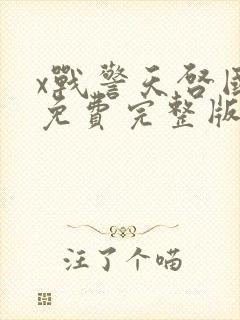 x戰警天啓國
免費完整版
注了个喵